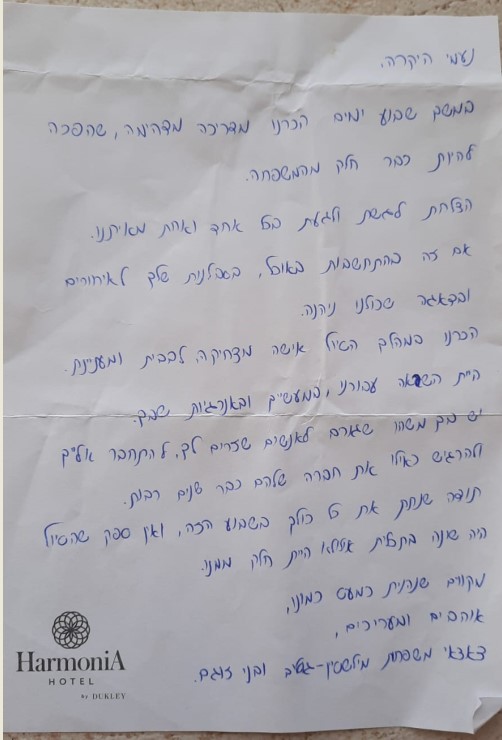 נעמי היקרה,
במשך שבוע ימים הכרנו מדריכה מדהימה, שהפכה
להיות כבר חלק מהמשפחה.
הצלחת לגשת ולגעת בכל אחד ואחת מאיתנו.
אם זה בהתחשבות באוכל, בסבלנות שלך לאיחורים
ובדאגה שכולנו ניהנה.
הכרנו במהלך הטיול אישה מצחיקה, לבבית ומעניינת.
היית השראה עבורנו, במעשייך ובאנרגיות שבך.
יש בך משהו שגורם לאנשים שזרים לך, להתחבר אלייך
ולהרגיש כאילו את חברה שלהם כבר שנים רבות.
תודה שנתת את כל כולך בשבוע הזה, ואין ספק שהטיול
היה שונה בתכלית אילולא היית חלק ממנו.
מקווים שנהנית כמעט כמונו,
אוהבים ומעריכים,
צאצאי משפחת מילשטיין- ובני זוגם.
HarmoniA
HOTEL
BY DUKLEY